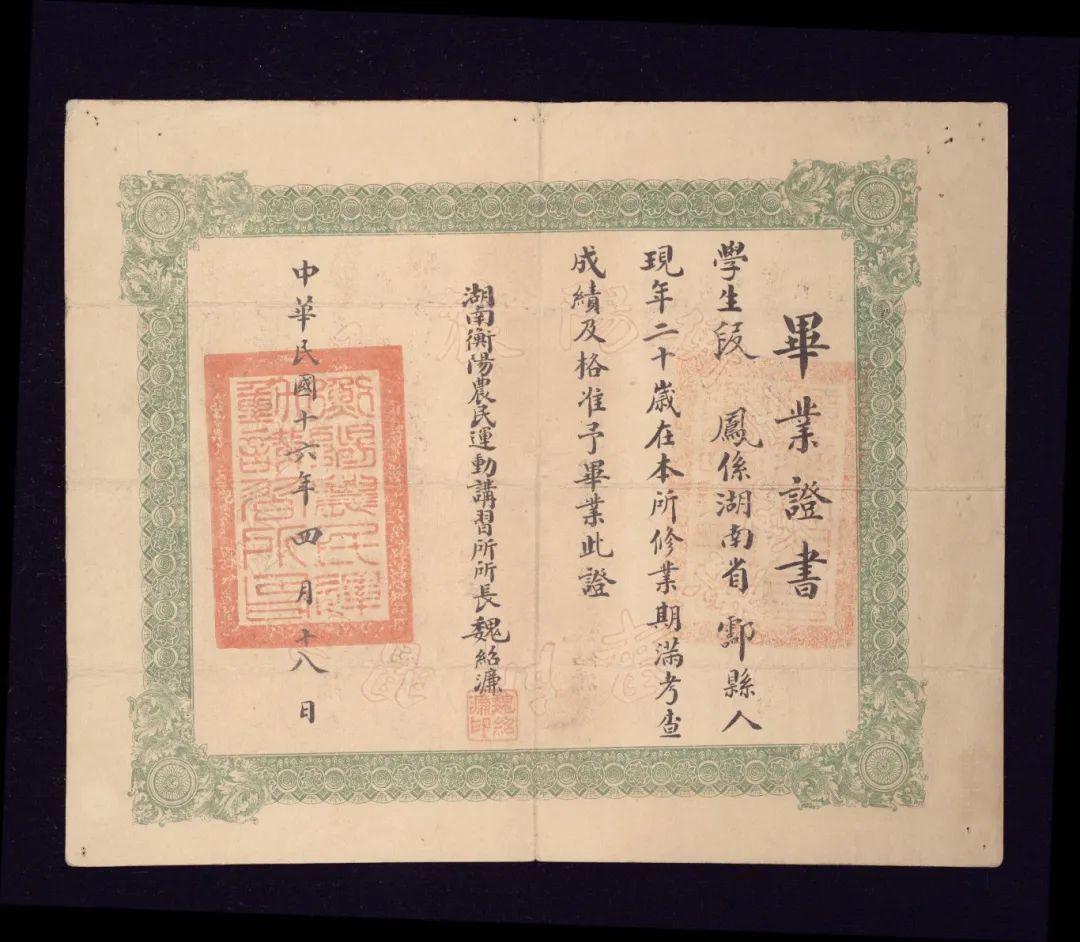 畢業證書
學生段 鳳係湖南省酃縣人
現年二十歲在本所修業期滿考查
成績及格准予畢業此證
湖南衡陽農民運動講習所所長魏紹濂
魏紹濂印
中華民國十六年四月十八日